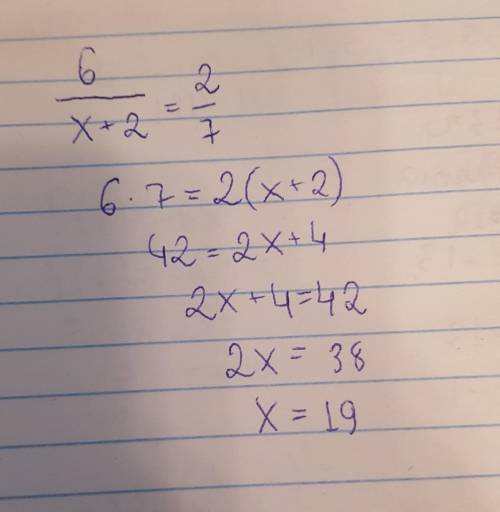 6/(x+2) = 2/7
6 · 7 = 2(x+2)
42 = 2x+4
2x+4=42
2x = 38
x = 19